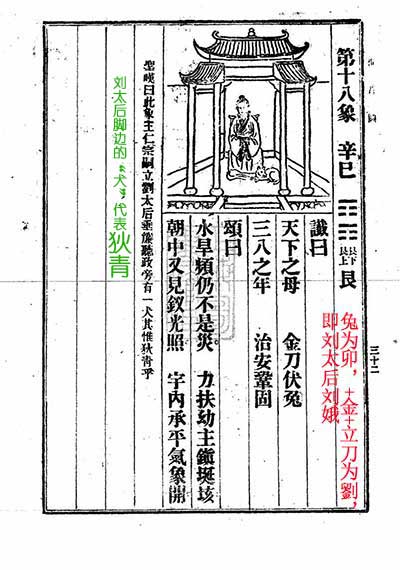 三十二
第十八象 辛巳 ䷳ 艮下艮上 艮
兔为卯，+金+立刀为劉，
即刘太后刘娥
讖曰
天下之母 金刀伏兔
三八之年 治安鞏固
頌曰
水旱頻仍不是災 力扶幼主鎮埏垓
朝中又見釵光照 宇內承平氣象開
聖嘆曰此象主仁宗嗣立劉太后垂簾聽政旁有一犬其惟狄青乎
刘太后脚边的“犬”代表狄青